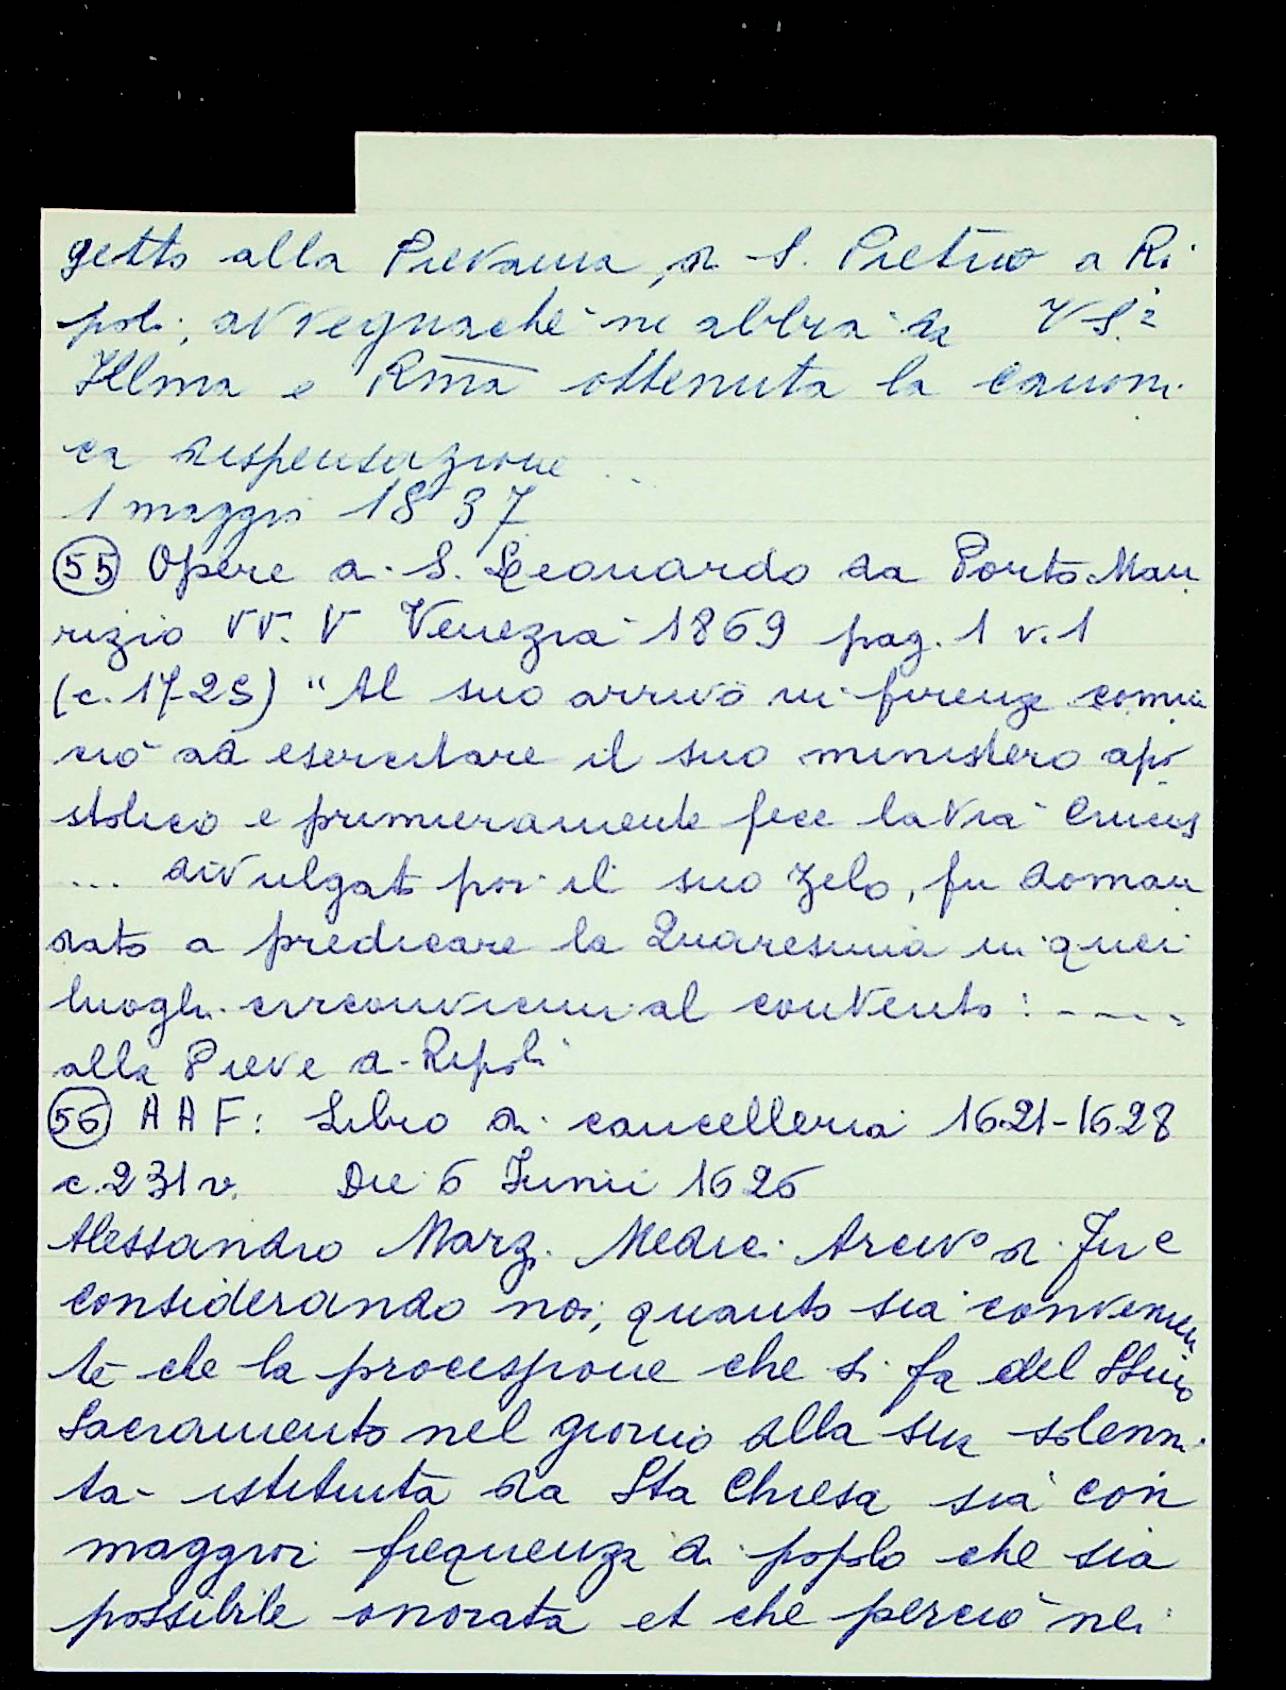 getto alla Pievania di S. Pietro a Ri
poli, avvegnachè ne abbia da VS.
Illma e Rma ottenuta la canoni
ca dispensazione ...
1 maggio 1837
55 Opere di S. Leonardo da Porto Mau
rizio VV. V Venezia 1869 pag. 1 v. 1
(c. 1725) "Al suo arrivo in firenze comin
ciò ad esercitare il suo ministero apo
stolico e primieramente fece la Via Crucis
... divulgato poi il suo zelo, fu doman
dato a predicare la Quaresima in quei
luoghi circonvicini al convento: ----
alla Pieve a Ripoli
56 AAF: Libro di cancelleria 1621-1628
c. 231 v. Die 6 Junii 1626
Alessandro Marz. Medici Arcivo di Fire
considerando noi, quanto sia convenien
te che la processione che si fa del SSmo
Sacramento nel giorno alla sua solenni
tà istituita da Sta Chiesa sia con
maggior frequenza di popolo che sia
possibile onorata et che perciò nei